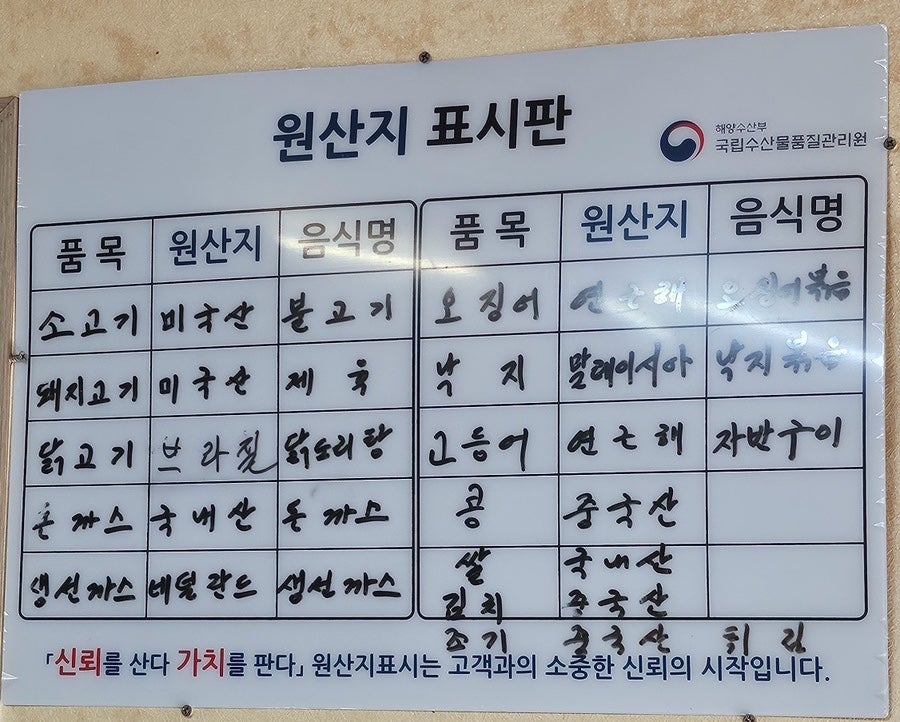 원산지 표시판
해양수산부
국립수산물품질관리원
품목 원산지 음식명
소고기 미국산 불고기
돼지고기 미국산 제육
닭고기 브라질 닭도리탕
돈까스 국내산 돈까스
생선까스 네덜란드 생선까스
품목 원산지 음식명
오징어 연근해 오징어볶음
낙지 말레이시아 낙지볶음
고등어 연근해 자반구이
콩 중국산
쌀 국내산
김치 중국산
조기 중국산 튀김
「신뢰를 산다 가치를 판다」 원산지표시는 고객과의 소중한 신뢰의 시작입니다.